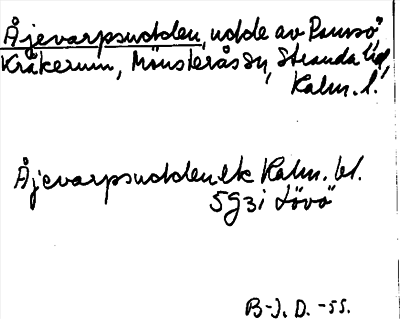 Åjevarpsudden, udde av Runnö,
Kråkerum, Mönsterås sn, Stranda hd,
Kalm. l.
Åjevarpsudden ek Kalm. bl.
5g3i Lövö
B-J. D. -55.